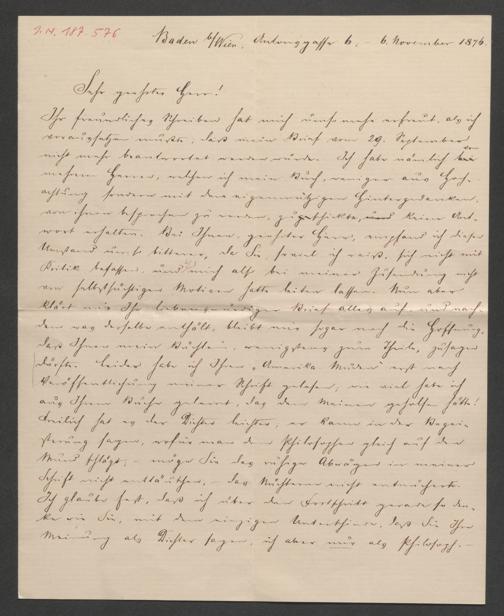 J.N. 187.576
Baden b/Wien. Antonsgasse 6. – 6. November 1876.
Sehr geehrter Herr!
Ihr freundliches Schreiben hat mich umso mehr erfreut, als ich
voraussetzen mußte, daß mein Brief vom 29. September
nicht mehr beantwortet werden würde. Ich habe nämlich von
mehren Herren, welchen ich mein Buch, weniger aus Hoch-
achtung sondern mit dem eigennützigen Hintergedanken,
von ihnen besprochen zu werden, zuschickte, keine Ant-
wort erhalten. Bei Ihnen, geehrter Herr, empfand ich diesen
Umstand umso bitterer, da Sie, soviel ich weiß, sich nicht mit
Kritik befassen, und mich also bei meiner Zusendung nicht
von selbstsüchtigen Motiven hatte leiten lassen. Nun aber
klärt mir Ihr liebenswürdiger Brief alles auf, und nach
dem was derselbe enthält, bleibt mir sogar noch die Hoffnung,
daß Ihnen mein Büchlein, wenigstens zum Theile, zusagen
dürfte. Leider habe ich Ihren „Amerika Müden" erst nach
Veröffentlichung meiner Schrift gelesen; wie viel habe ich
aus Ihrem Buche gelernt, das dem Meinen geholfen hätte!
Freilich hat es der Dichter leichter, er kann in der Begei-
sterung sagen, wofür man den Philosophen gleich auf den
Mund schlägt, – möge Sie das ruhige Abwägen in meiner
Schrift nicht enttäuschen, – das Nüchterne nicht
Ich glaube fest, daß ich über den Fortschritt gerade so den-
ke wie Sie, mit dem einzigen Unterschiede, daß Sie Ihre
Meinung als Dichter sagen, ich aber nur als Philosoph. –